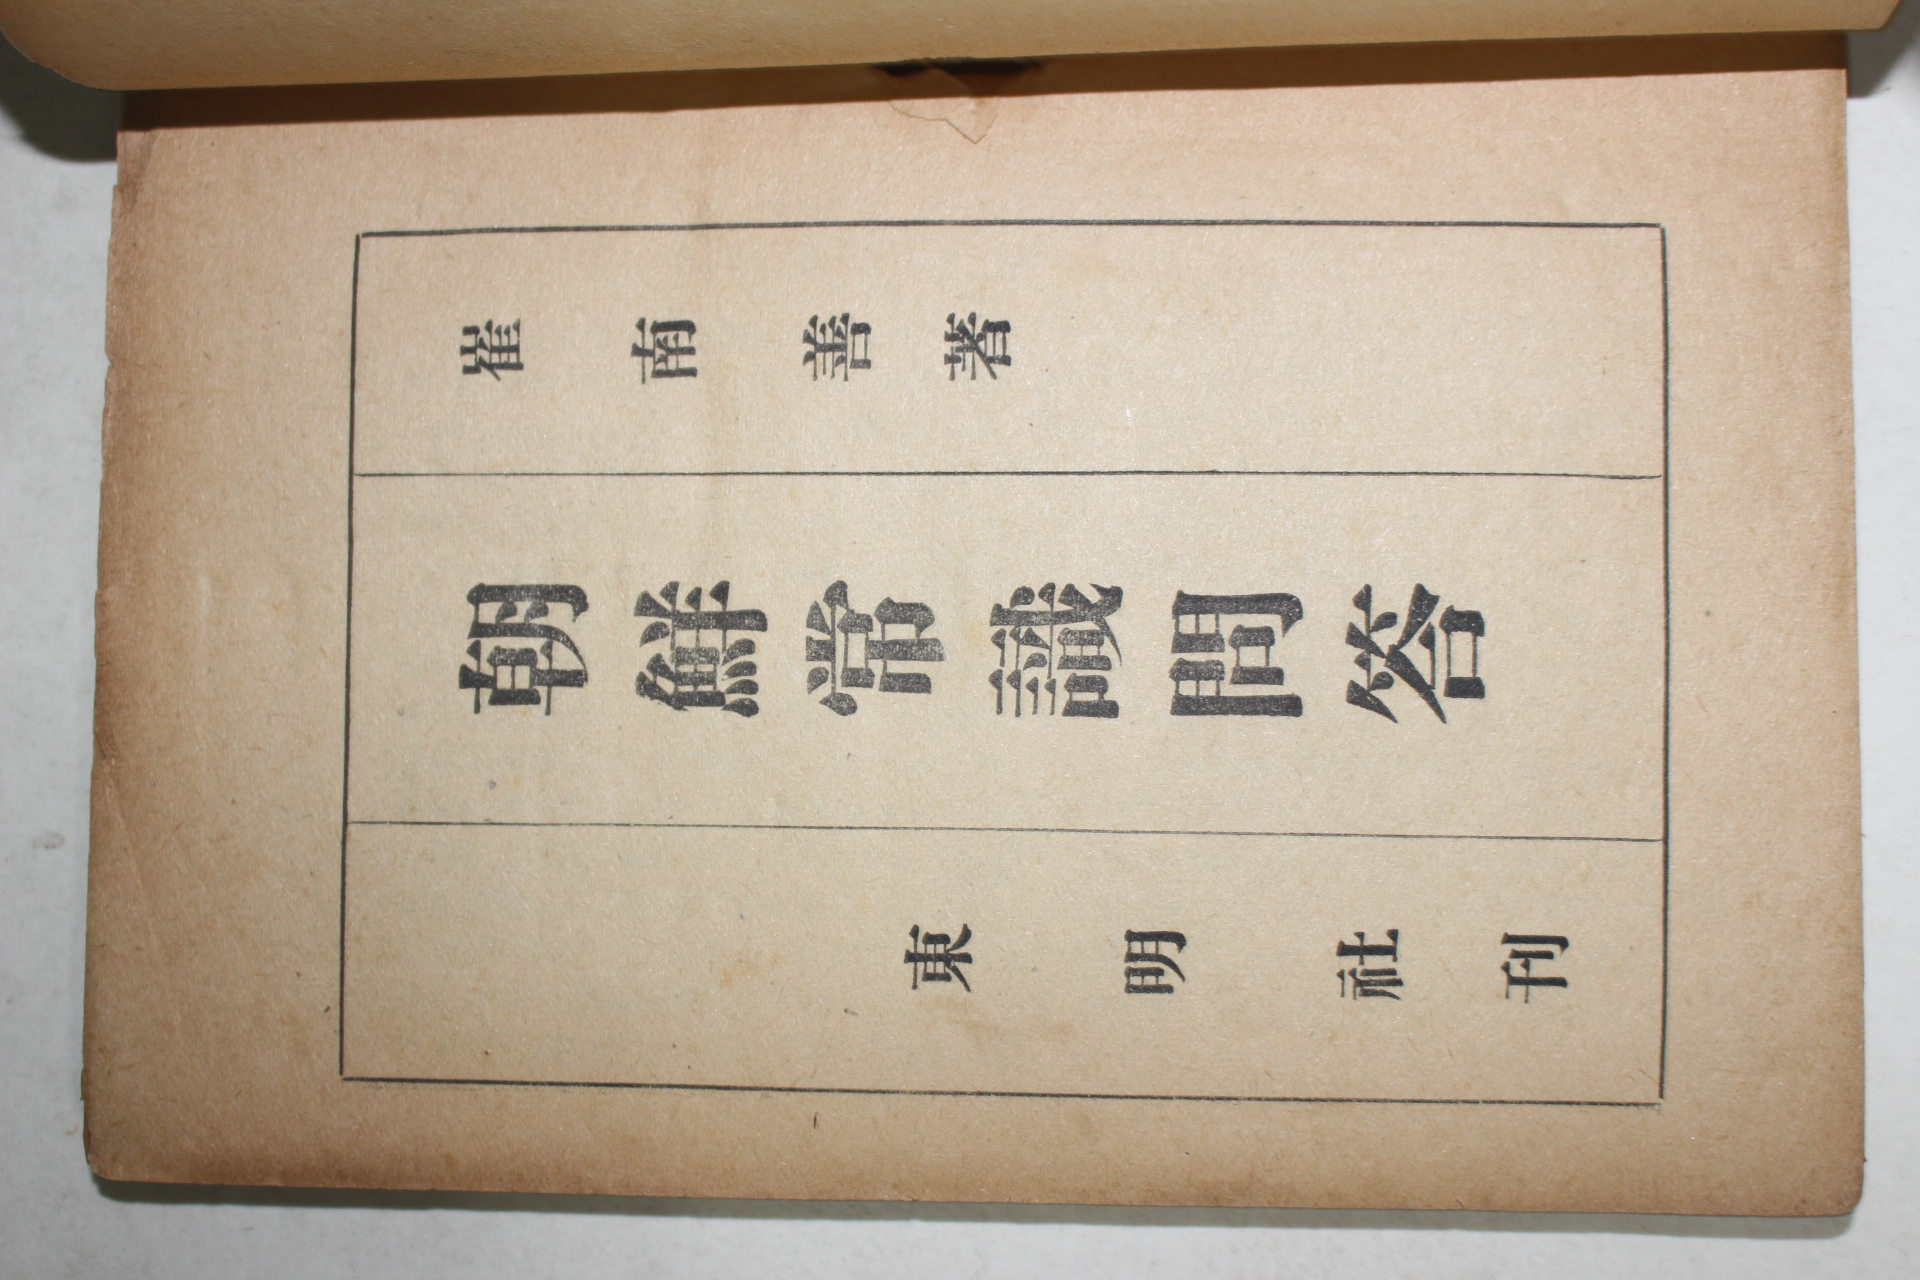 崔南善著
朝鮮常識問答
東明社刊